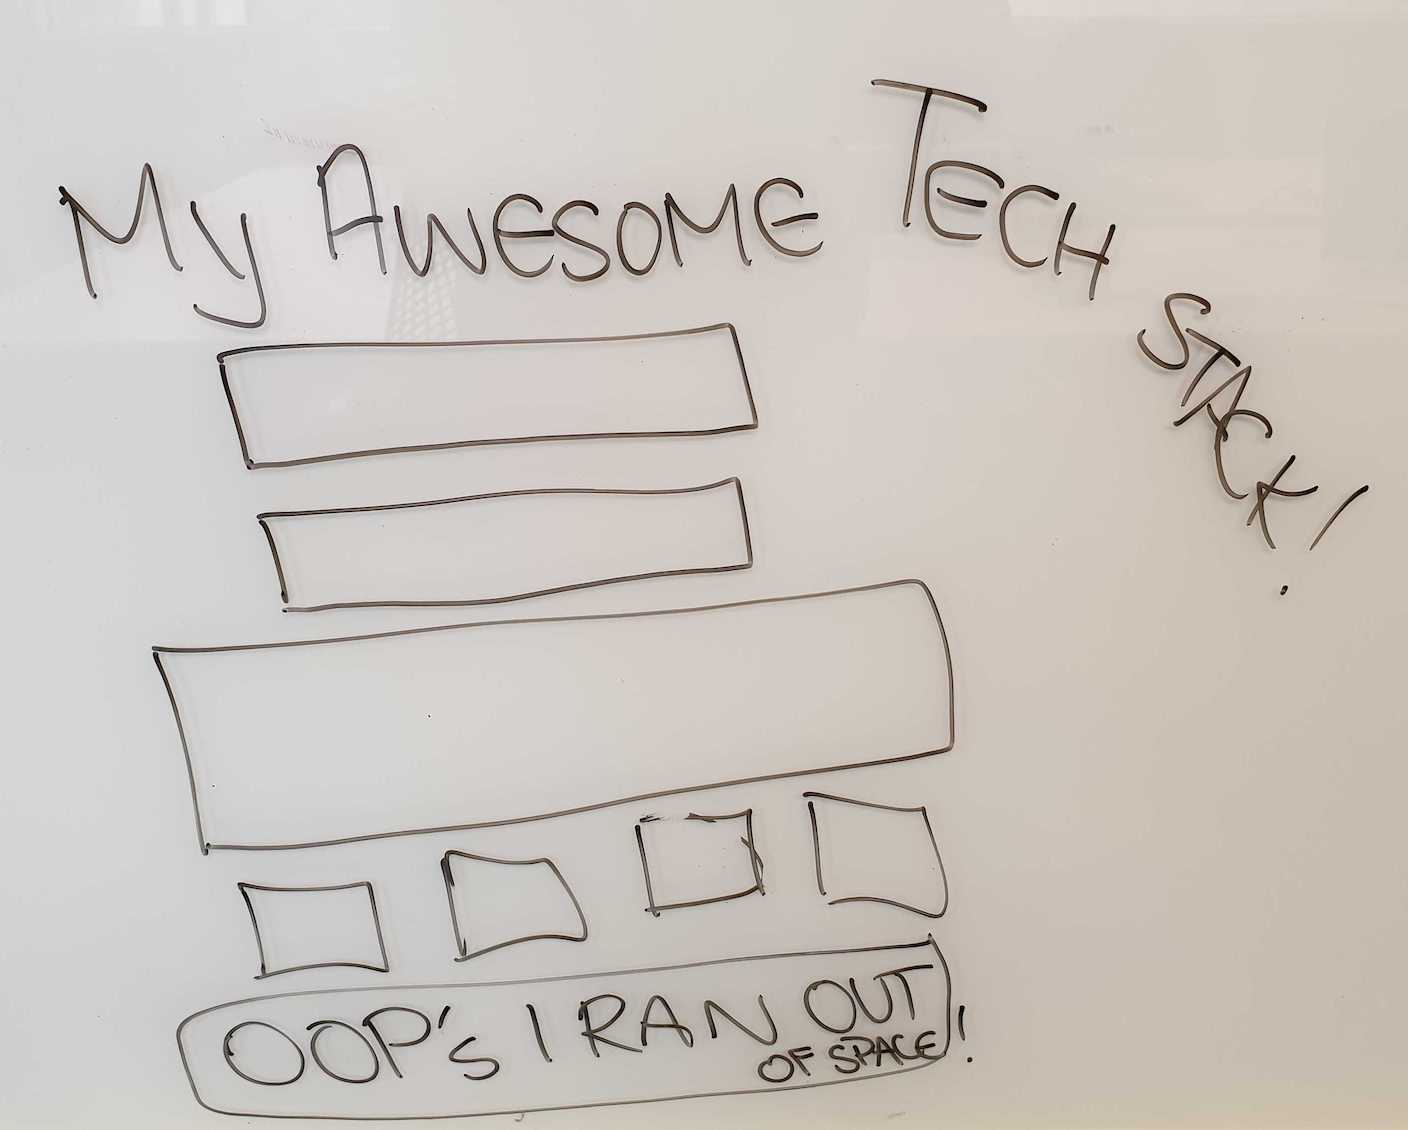 My AWESOME TECH STACK!
OOP's I RAN OUT
OF SPACE!